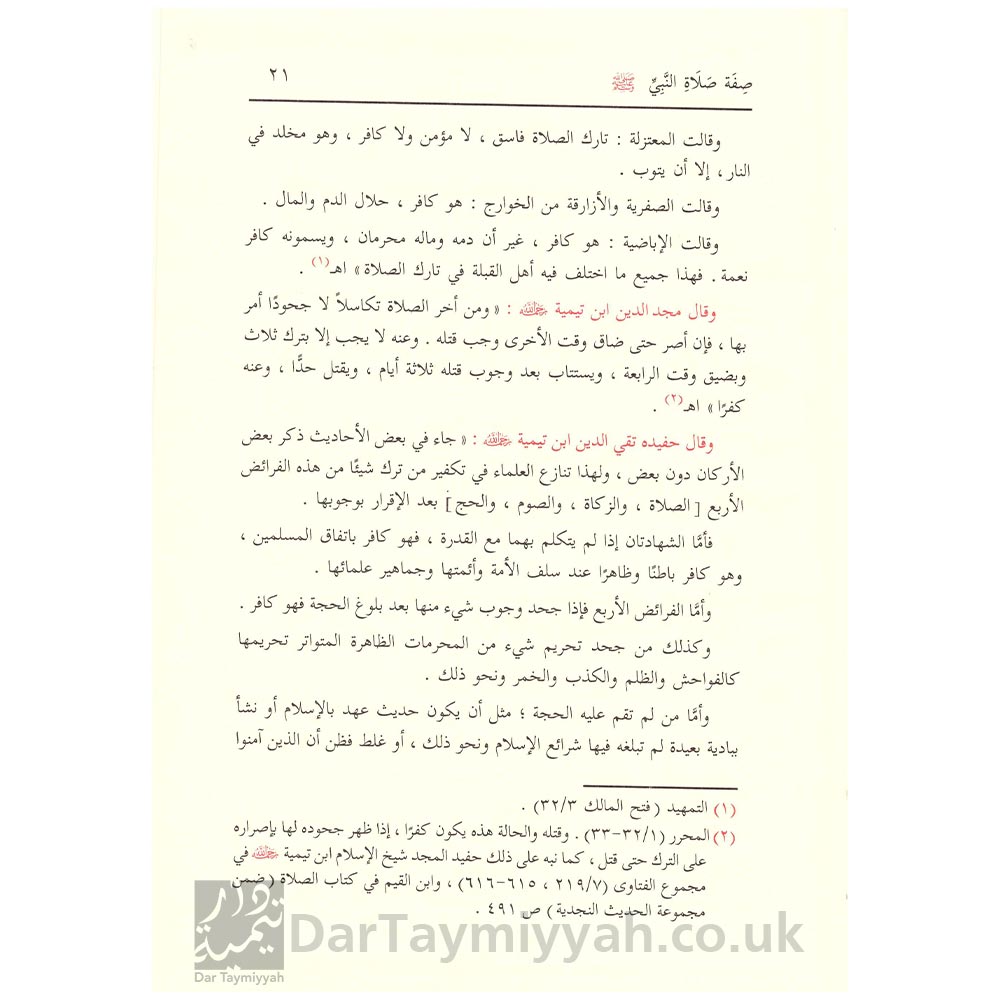 صِفَة صَلَاةِ النَّبِيِّ ﷺ ٢١
وقالت المعتزلة : تارك الصلاة فاسق ، لا مؤمن ولا كافر ، وهو مخلد في
النار ، إلا أن يتوب .
وقالت الصفرية والأزارقة من الخوارج : هو كافر ، حلال الدم والمال .
وقالت الإباضية : هو كافر ، غير أن دمه وماله محرمان ، ويسمونه كافر
نعمة . فهذا جميع ما اختلف فيه أهل القبلة في تارك الصلاة » اهـ(١) .
وقال مجد الدين ابن تيمية رحمه الله : « ومن أخر الصلاة تكاسلاً لا جحودًا أمر
بها ، فإن أصر حتى ضاق وقت الأخرى وجب قتله . وعنه لا يجب إلا بترك ثلاث
وبضيق وقت الرابعة ، ويستتاب بعد وجوب قتله ثلاثة أيام ، ويقتل حدًّا ، وعنه
كفرًا » اهـ(٢) .
وقال حفيده تقي الدين ابن تيمية رحمه الله : « جاء في بعض الأحاديث ذكر بعض
الأركان دون بعض ، ولهذا تنازع العلماء في تكفير من ترك شيئًا من هذه الفرائض
الأربع [ الصلاة ، والزكاة ، والصوم ، والحج ] بعد الإقرار بوجوبها .
فأمَّا الشهادتان إذا لم يتكلم بهما مع القدرة ، فهو كافر باتفاق المسلمين ،
وهو كافر باطنًا وظاهرًا عند سلف الأمة وأئمتها وجماهير علمائها .
وأمَّا الفرائض الأربع فإذا جحد وجوب شيء منها بعد بلوغ الحجة فهو كافر .
وكذلك من جحد تحريم شيء من المحرمات الظاهرة المتواتر تحريمها
كالفواحش والظلم والكذب والخمر ونحو ذلك .
وأمَّا من لم تقم عليه الحجة ؛ مثل أن يكون حديث عهد بالإسلام أو نشأ
ببادية بعيدة لم تبلغه فيها شرائع الإسلام ونحو ذلك ، أو غلط فظن أن الذين آمنوا
(١) التمهيد ( فتح المالك ٣٢/٣) .
(٢) المحرر (٣٢/١-٣٣) . وقتله والحالة هذه يكون كفرًا ، إذا ظهر جحوده لها بإصراره
على الترك حتى قتل ، كما نبه على ذلك حفيد المجد شيخ الإسلام ابن تيمية رحمه الله في
مجموع الفتاوى (٢١٩/٧ ، ٦١٥-٦١٦) ، وابن القيم في كتاب الصلاة ( ضمن
مجموعة الحديث النجدية ) ص ٤٩١ .
دار تيمية
Dar Taymiyyah
DarTaymiyyah.co.uk